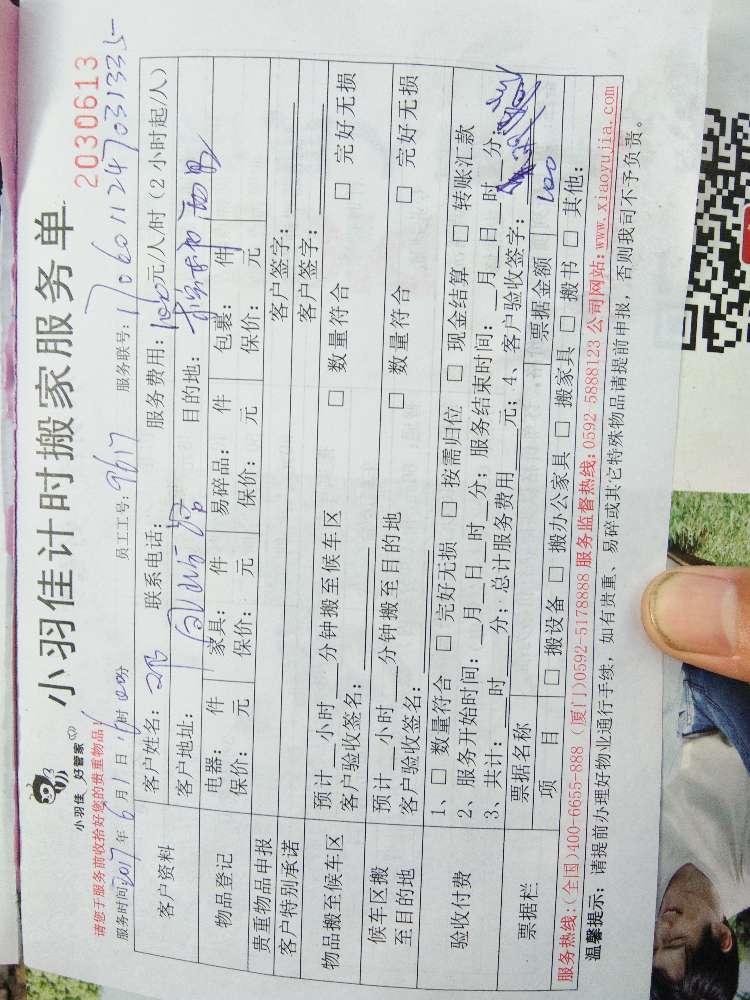 小羽佳 好管家
小羽佳计时搬家服务单
2030613
请您于服务前收拾好您的贵重物品!
服务时间:2017年6月1日 时 分 员工工号:9617 服务联号:1706011247031335
客户资料
客户姓名:邓 联系电话: 服务费用:100元/人/时(2小时起/人)
客户地址: 目的地:
物品登记
电器: 件 家具: 件 易碎品: 件 包裹: 件
保价: 元 保价: 元 保价: 元 保价: 元
贵重物品申报 客户签字:
客户特别承诺 客户签字:
物品搬至候车区
预计__小时__分钟搬至候车区 □ 数量符合 □ 完好无损
客户验收签名:
候车区搬至目的地
预计__小时__分钟搬至目的地 □ 数量符合 □ 完好无损
客户验收签名:
验收付费
1、□ 数量符合 □ 完好无损 □ 按需归位 □ 现金结算 □ 转账汇款
2、服务开始时间:__月__日__时__分;服务结束时间:__月__日__时__分;
3、共计:__时__分;总计服务费用__元;4、客户验收签字:
票据栏
票据名称 票据金额 100
项目 □ 搬设备 □ 搬办公家具 □ 搬家具 □ 搬书 □ 其他:
服务热线:(全国)400-6655-888 (厦门)0592-5178888 服务监督热线:0592 5888123 公司网站:www.xiaoyujia.com
温馨提示:请提前办理好物业通行手续,如有贵重、易碎或其它特殊物品请提前申报,否则我司不予负责。